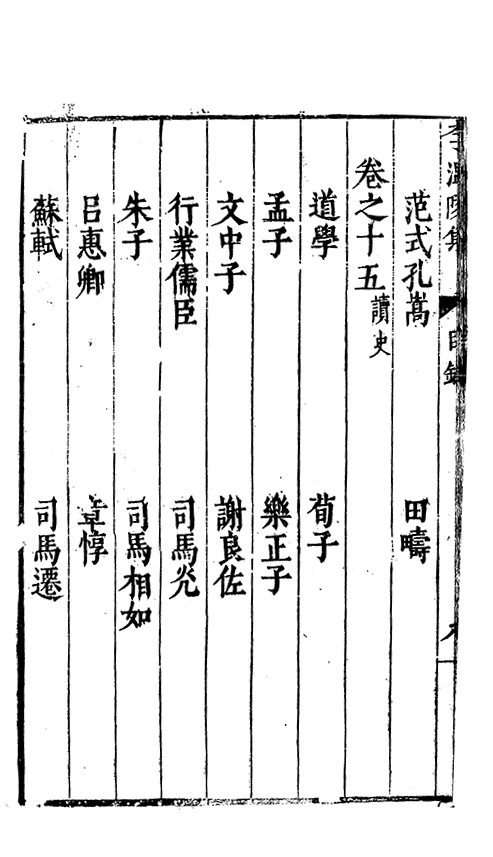 李溫陵集 目錄
范式孔嵩 田疇
卷之十五 讀史
道學 荀子
孟子 樂正子
文中子 謝良佐
行業儒臣 司馬光
朱子 司馬相如
呂惠卿 章惇
蘇軾 司馬遷